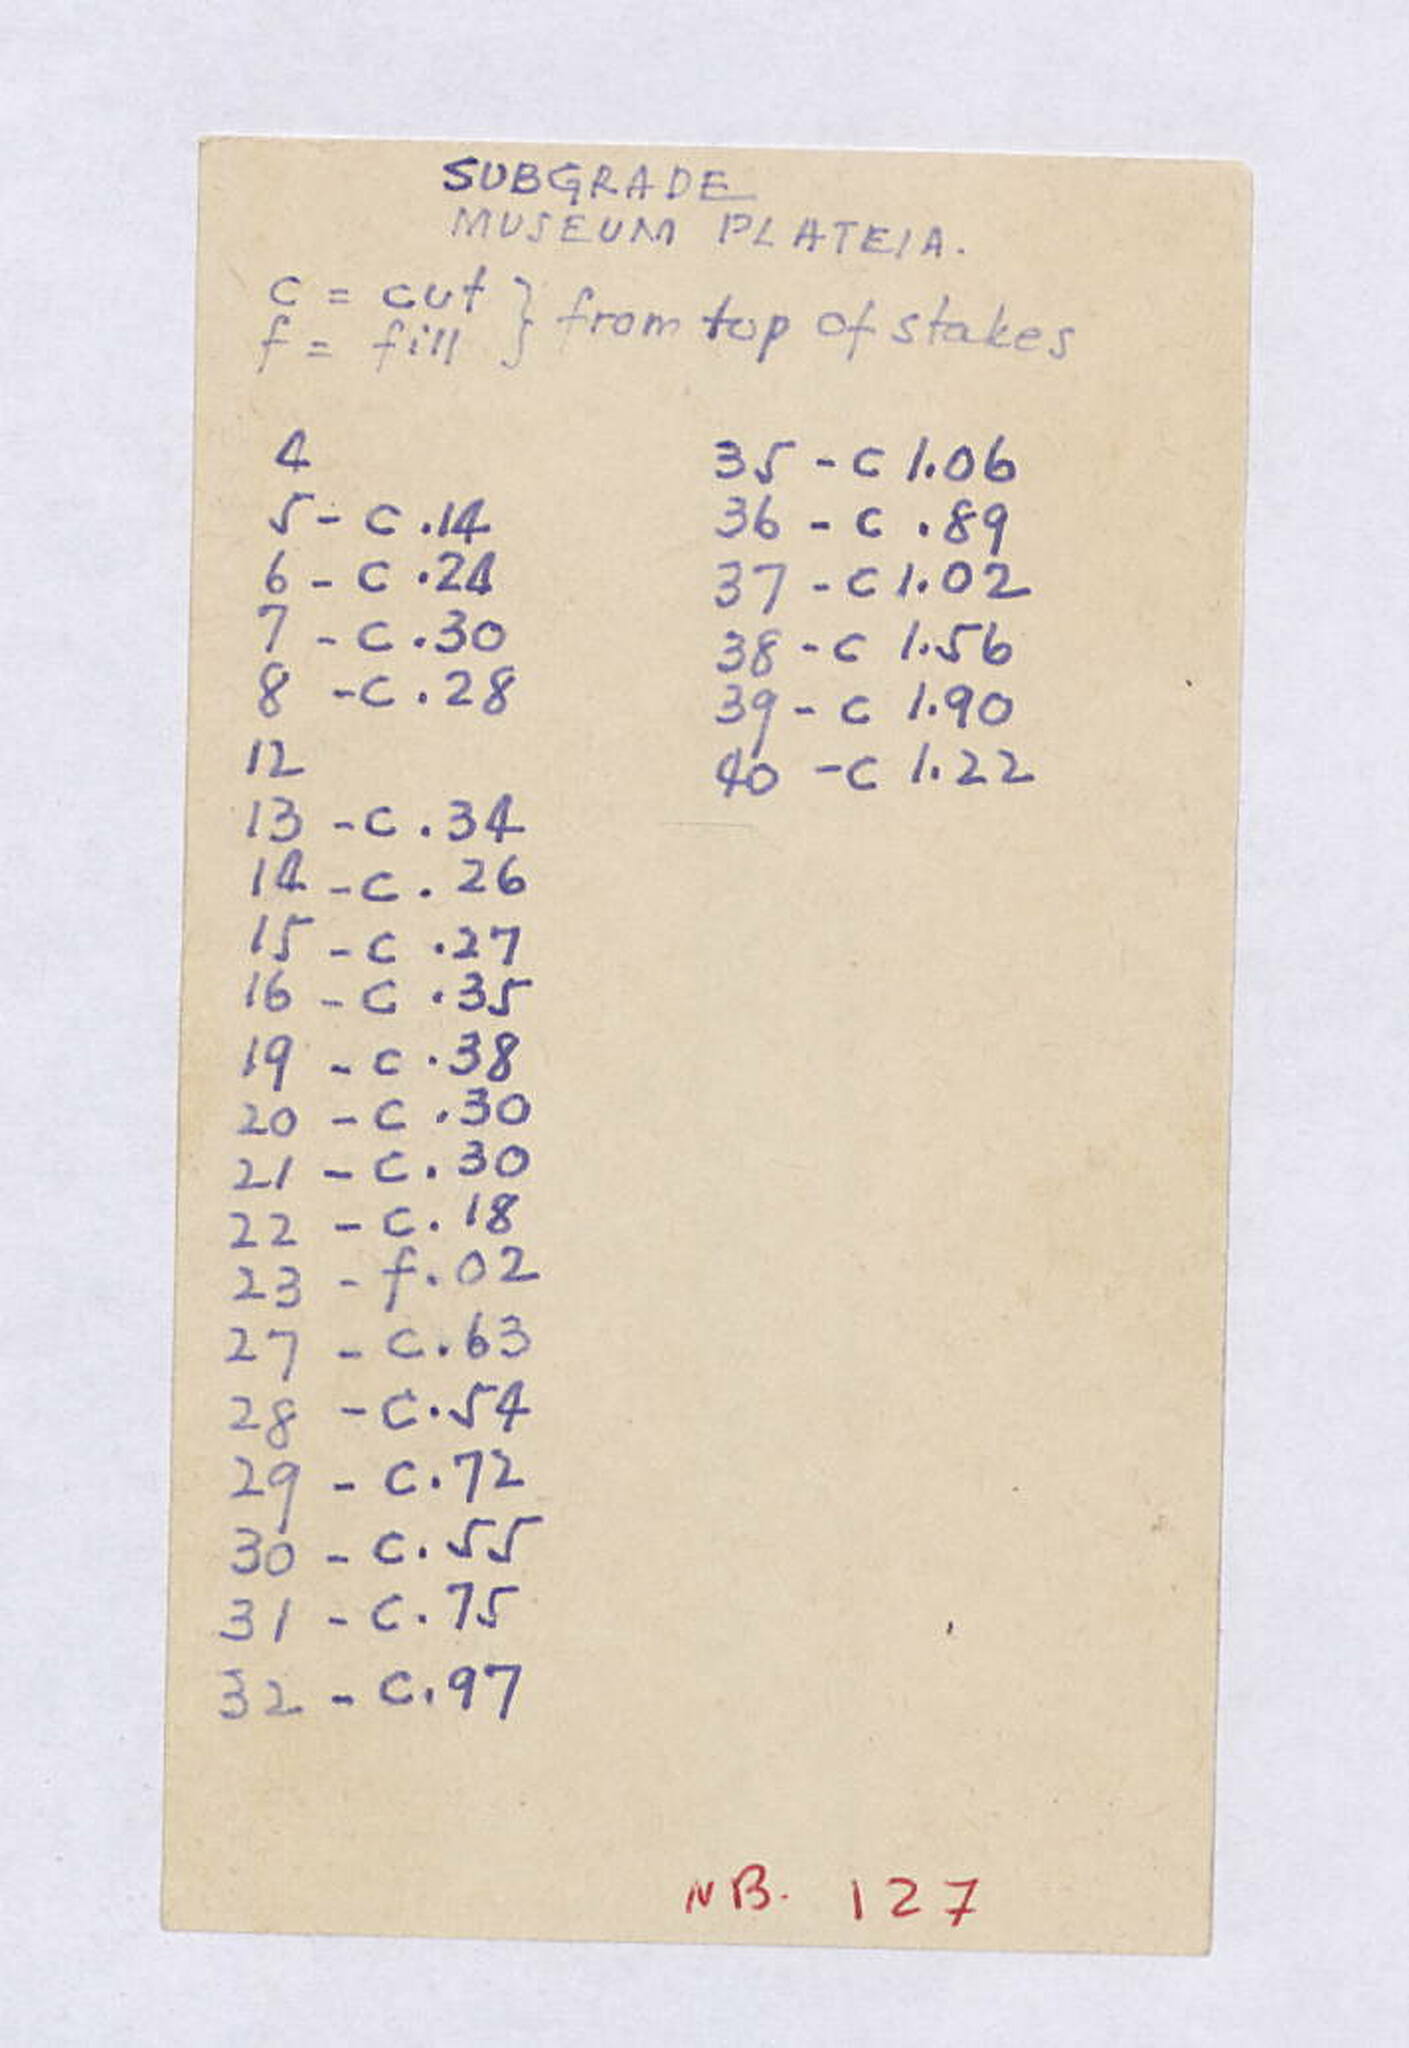 SUBGRADE
MUSEUM PLATEIA.
c = cut } from top of stakes
f = fill
4
5 - c .14
6 - c .24
7 - c .30
8 - c .28
12
13 - c .34
14 - c . 26
15 - c .27
16 - c .35
19 - c .38
20 - c .30
21 - c . 30
22 - c . 18
23 - f .02
27 - c .63
28 - c .54
29 - c .72
30 - c .55
31 - c .75
32 - c .97
35 - c 1.06
36 - c .89
37 - c 1.02
38 - c 1.56
39 - c 1.90
40 - c 1.22
NB. 127